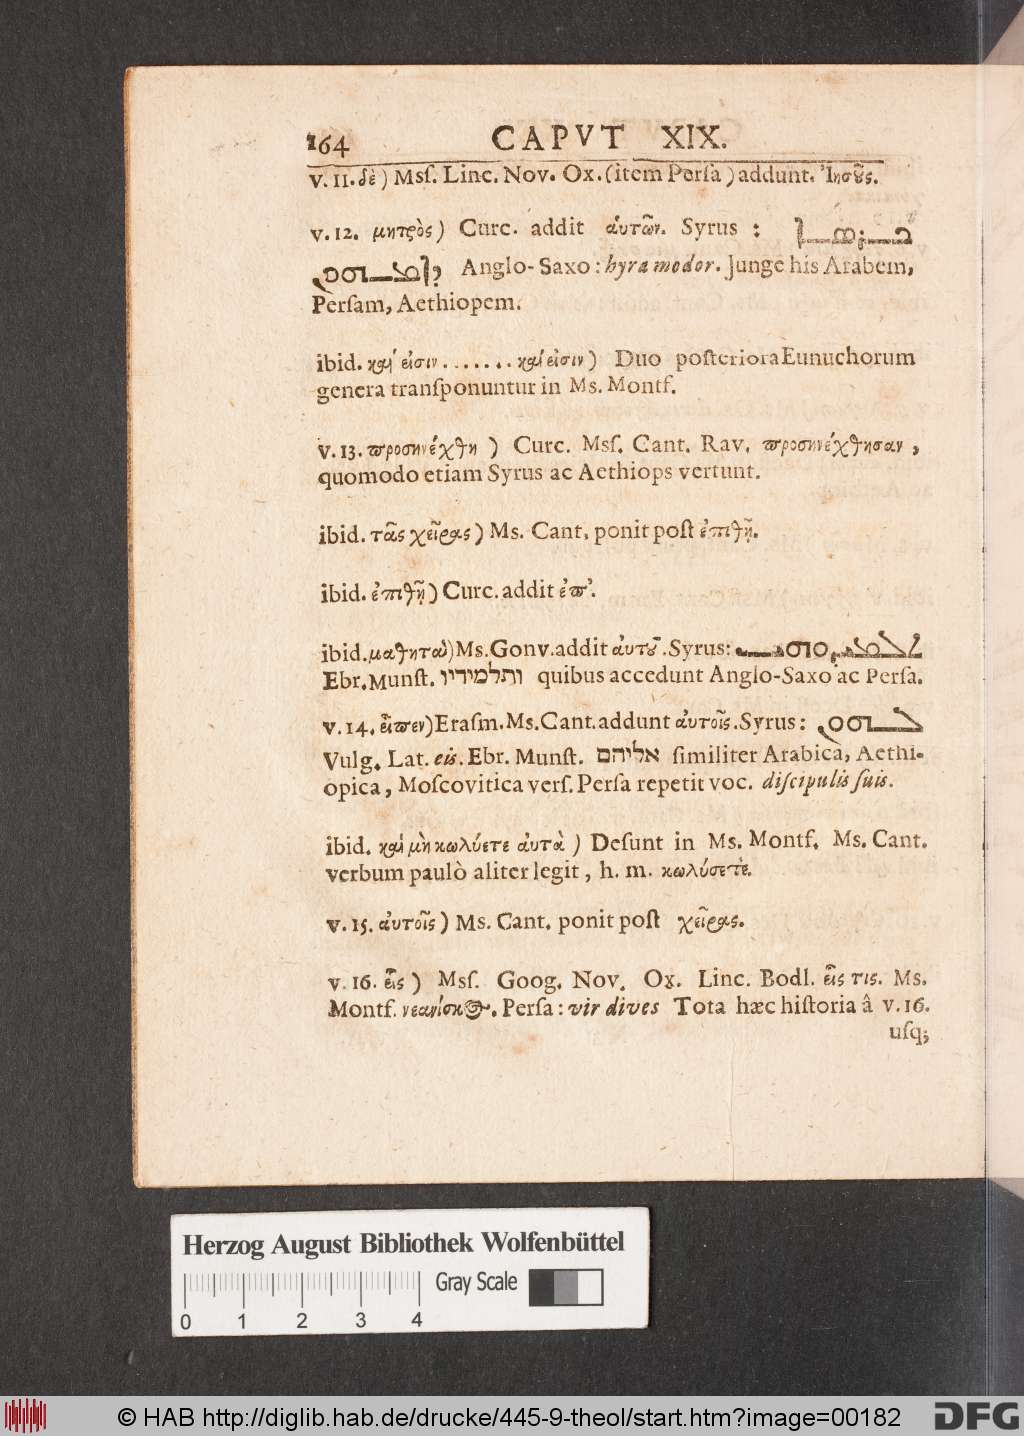 164 CAPVT XIX.
v. 11. δὲ) Mſſ. Linc. Nov. Ox. (item Perſa) addunt. Ἰησοῦς.
v. 12. μητρὸς) Curc. addit ἀυτῶν. Syrus :
Anglo-Saxo: hyra modor. Junge his Arabem,
Perſam, Aethiopem.
ibid. καί εἰσιν ....... καί εἰσιν) Duo poſteriora Eunuchorum
genera tranſponuntur in Ms. Montf.
v. 13. προσηνέχθη ) Curc. Mſſ. Cant. Rav. προσηνέχθησαν,
quomodo etiam Syrus ac Aethiops vertunt.
ibid. τᾶς χεῖρας) Ms. Cant. ponit poſt ἐπιθῇ.
ibid. ἐπιθῇ) Curc. addit ἐπ'.
ibid. μαθηταὶ) Ms. Gonv. addit ἀυτοῦ. Syrus:
Ebr. Munſt. ותלמידיו quibus accedunt Anglo-Saxo ac Perſa.
v. 14. εἶπεν) Eraſm. Ms. Cant. addunt ἀυτοῖς. Syrus: ܠܗܘܢ
Vulg. Lat. eis. Ebr. Munſt. אליהם ſimiliter Arabica, Aethi-
opica, Moſcovitica verſ. Perſa repetit voc. diſcipulis ſuis.
ibid. καὶ μὴ κωλύετε ἀυτὰ ) Deſunt in Ms. Montf. Ms. Cant.
verbum paulò aliter legit, h. m. κωλύσετε.
v. 15. ἀυτοῖς) Ms. Cant. ponit poſt χεῖρας.
v. 16. εἷς ) Mſſ. Goog. Nov. Ox. Linc. Bodl. εἷς τις. Ms.
Montf. νεανίσκος. Perſa: vir dives Tota hæc hiſtoria â v. 16.
uſq;
Herzog August Bibliothek Wolfenbüttel
Gray Scale
0 1 2 3 4
© HAB http://diglib.hab.de/drucke/445-9-theol/start.htm?image=00182 DFG